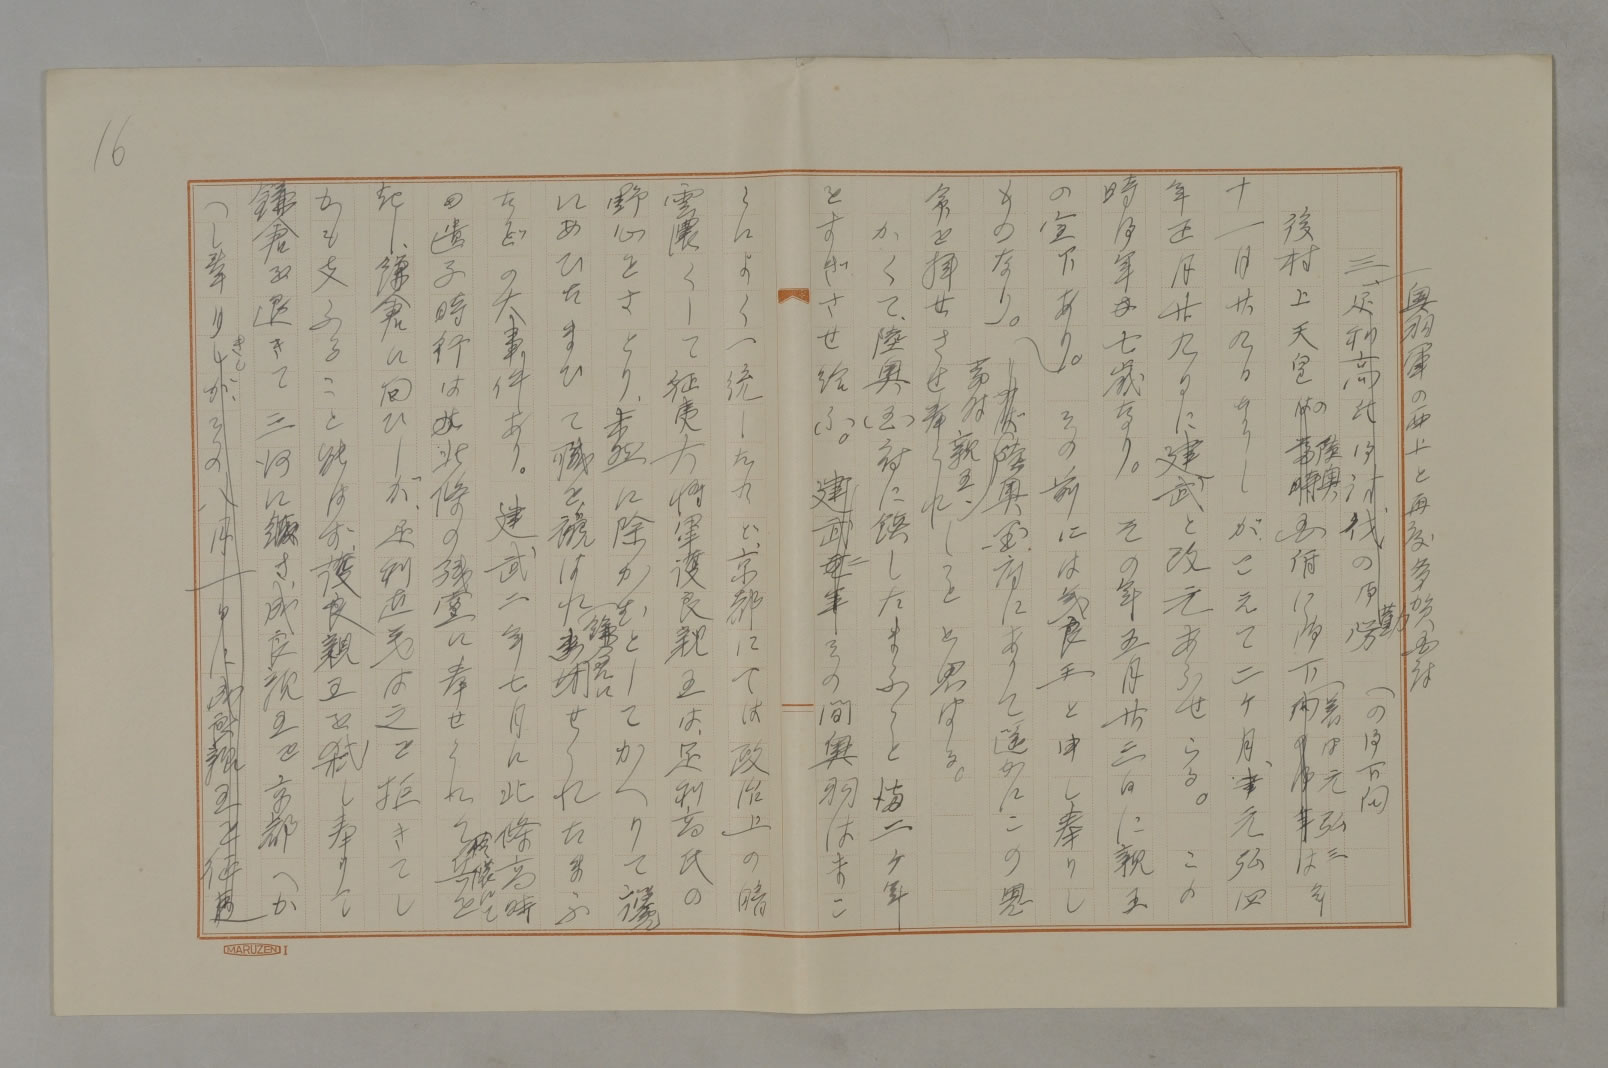 16
奥羽軍の西上と再度多賀国府
三、足利高氏御討伐の御勤労
後村上天皇の陸奥国府に御下向の御年は元弘三年
十一月廿九日なりしが、こえて二ヶ月、元弘四
年正月廿九日に建武と改元あらせらる。この
時御年七歳なり。その年五月廿三日に親王
の宣下あり。その前には義良王と申し奉りし
ものなり。陸奥国府にありて遥かにこの恩
命を拝せさせ奉られしことと思はる。
かくて、陸奥国府に鎮したまふこと満二ヶ年
とすぎさせ給ふ。建武その間奥羽はまこ
とによく一統したれど、京都にては政治上の暗
雲濃くして征夷大将軍護良親王は、足利高氏の
野心をさとり、未然に除かむとしてかへりて讒
にあひたまひて職を褫はれ鎌倉に幽せられたまふ
などの大事件あり。建武二年七月に北條高時
の遺子時行は北條の残党に奉せられて信濃にて兵を
起し、鎌倉に向ひしが、足利直義は之を拒きてし
かも支ふること能はず、護良親王を弑し奉りて
鎌倉を退きて三河に、成良親王を京都へか
へし奉りき
MARUZEN I